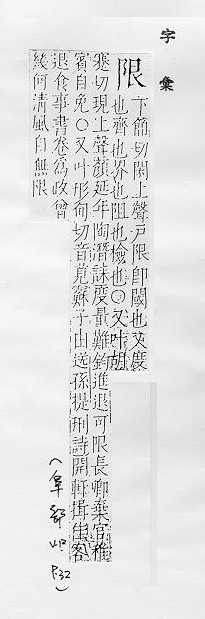 字彙
限
下簡切閑上聲戶限卽閾也又度
也齊也界也阻也檢也○又叶胡
蹇切現上聲顏延年陶潛誄度量難鈞進退可限長卿棄官稚
賓自免○又叶形甸切音莧蘇子由送孫提刑詩開軒揖佳客
退食事書卷爲政曾
幾何清風自無限
(阜部 P.32)